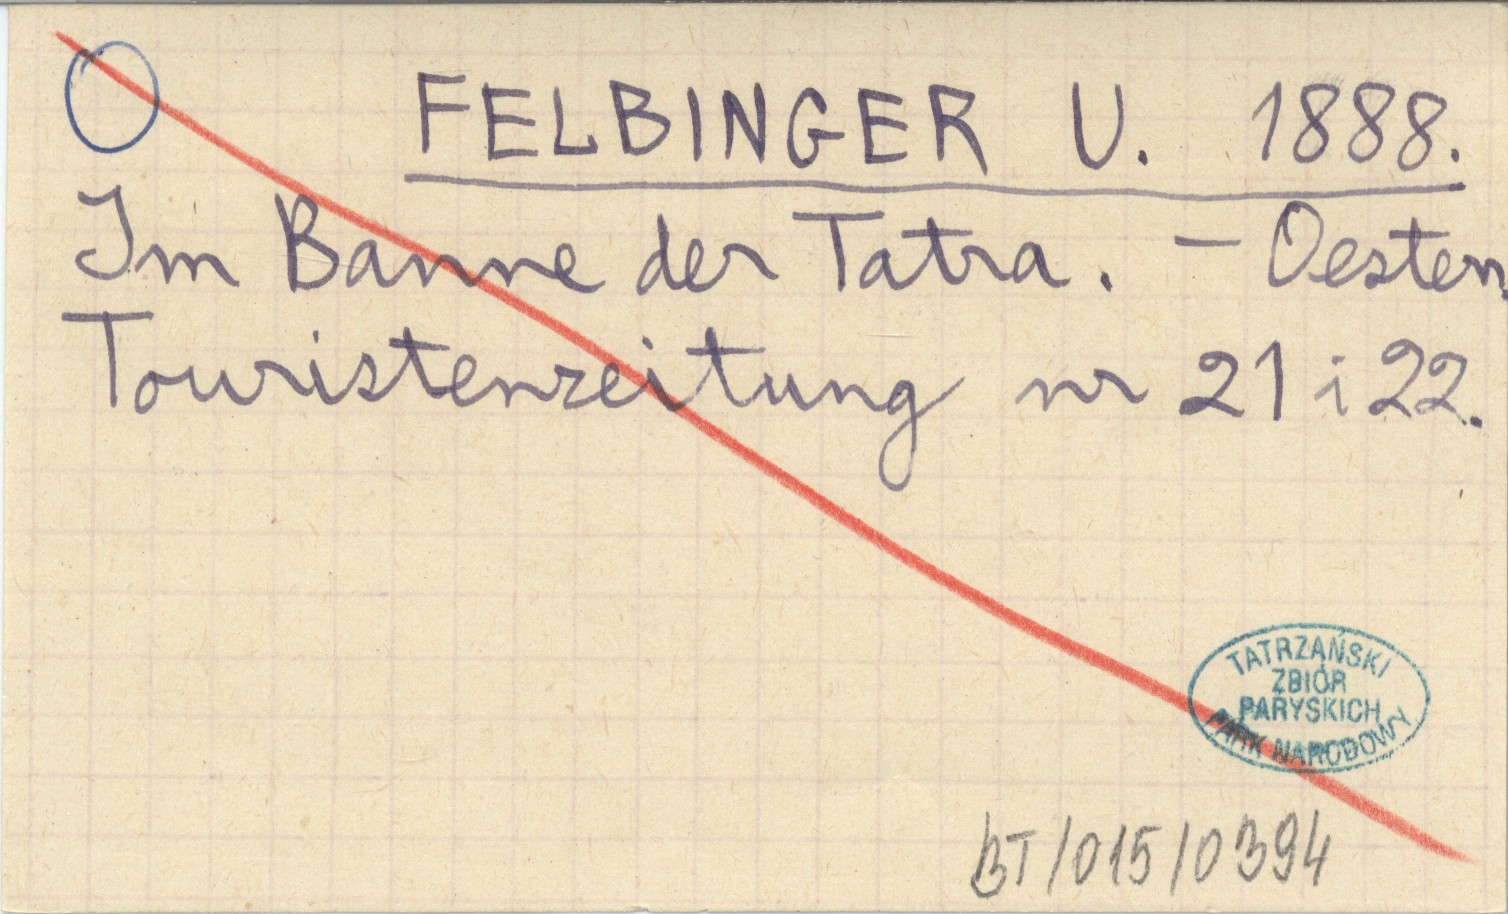 FELBINGER U. 1888.
Im Banne der Tatra. – Oesterr.
Touristenzeitung nr 21 i 22.
TATRZAŃSKI
ZBIÓR
PARYSKICH
PARK NARODOWY
BT/015/0394